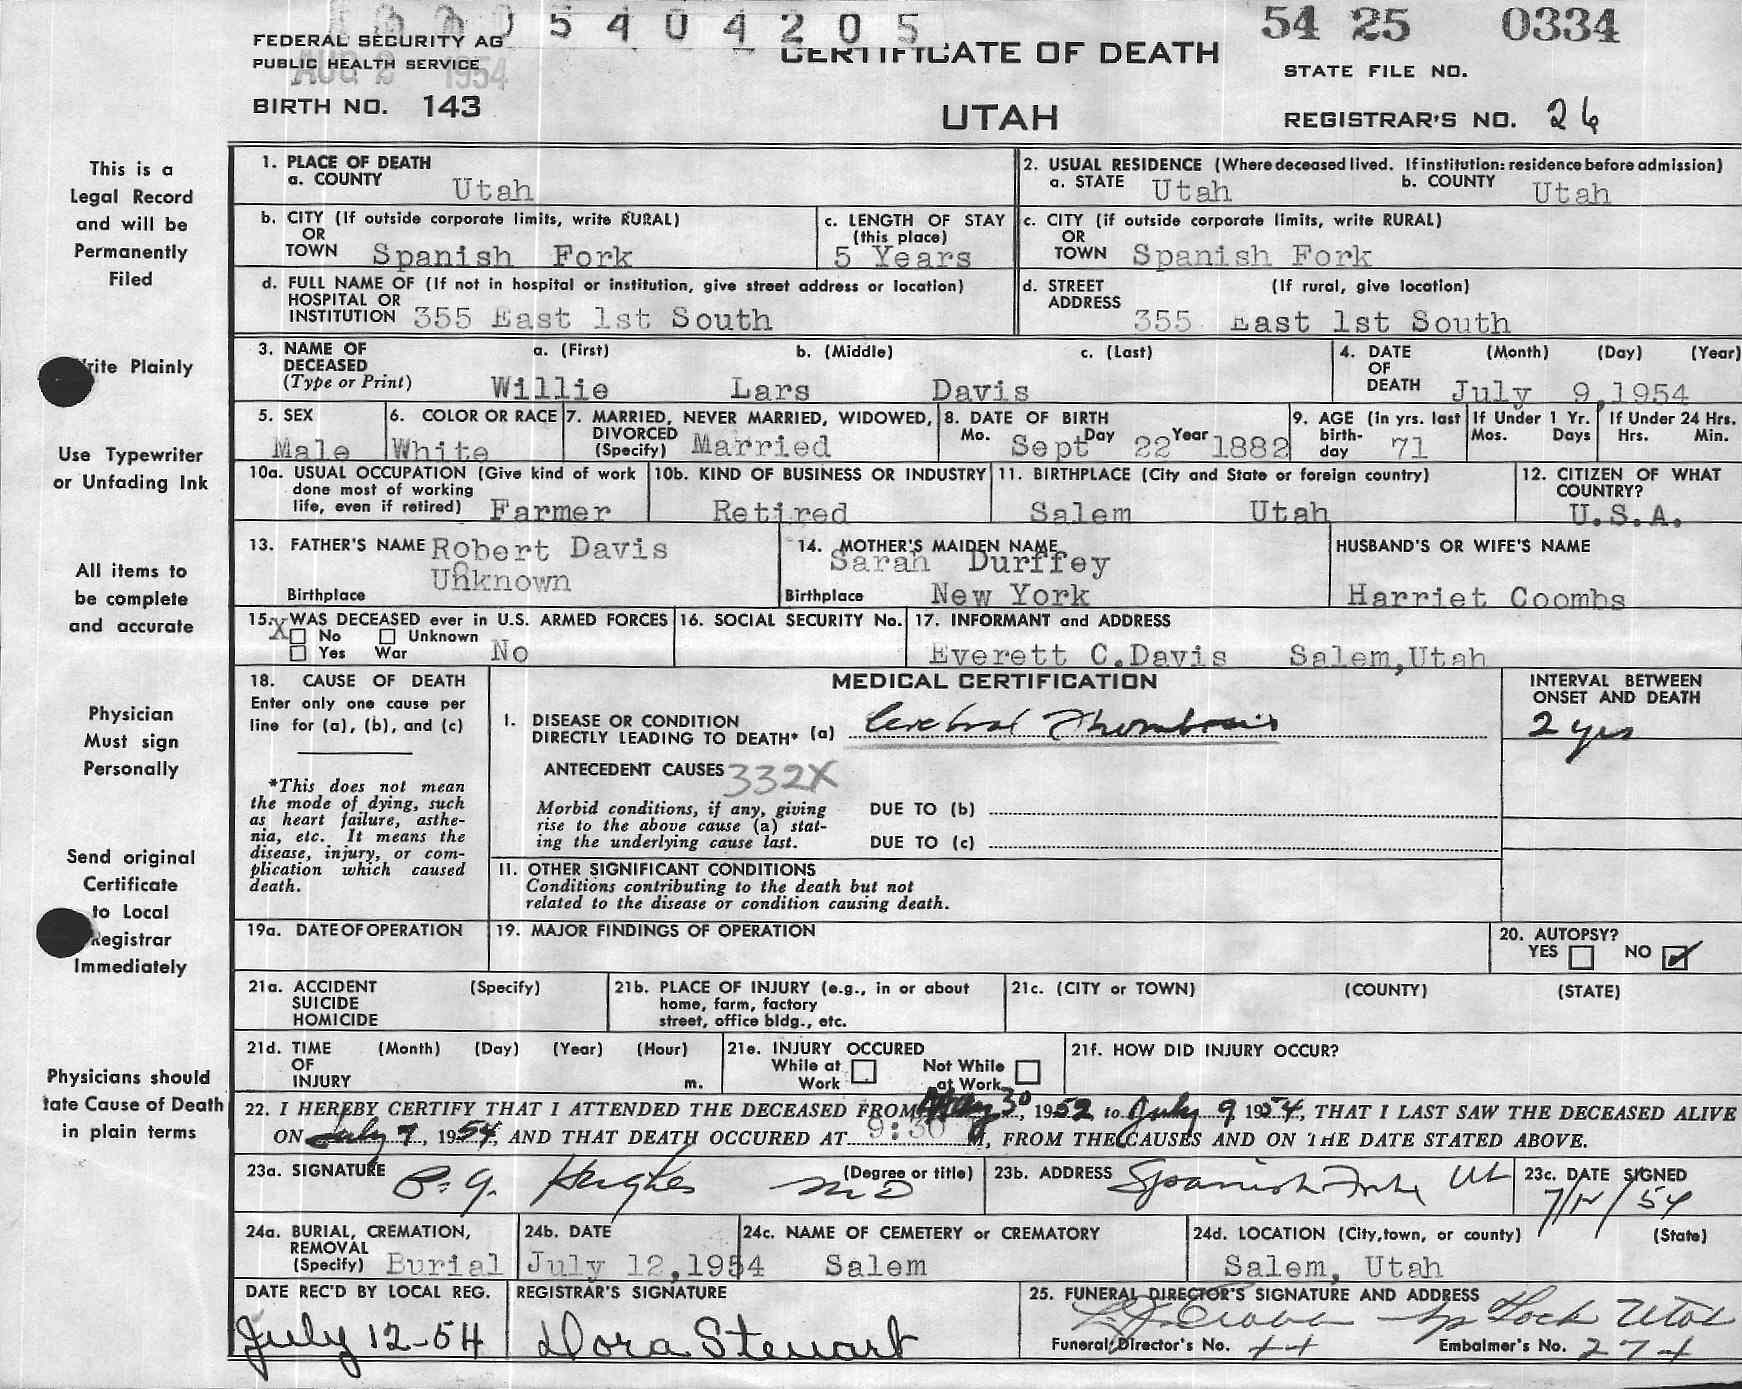 5 4 0 4 2 0 5
54 25 0334
FEDERAL SECURITY AG
PUBLIC HEALTH SERVICE
AUG 2 1954
CERTIFICATE OF DEATH
STATE FILE NO.
BIRTH NO. 143
UTAH
REGISTRAR'S NO. 26
This is a
Legal Record
and will be
Permanently
Filed
rite Plainly
Use Typewriter
or Unfading Ink
All items to
be complete
and accurate
Physician
Must sign
Personally
Send original
Certificate
to Local
Registrar
Immediately
Physicians should
tate Cause of Death
in plain terms
1. PLACE OF DEATH
a. COUNTY Utah
2. USUAL RESIDENCE (Where deceased lived. If institution: residence before admission)
a. STATE Utah b. COUNTY Utah
b. CITY (If outside corporate limits, write RURAL)
OR
TOWN Spanish Fork
c. LENGTH OF STAY
(this place)
5 Years
c. CITY (if outside corporate limits, write RURAL)
OR
TOWN Spanish Fork
d. FULL NAME OF (If not in hospital or institution, give street address or location)
HOSPITAL OR
INSTITUTION 355 East 1st South
d. STREET (If rural, give location)
ADDRESS
355 East 1st South
3. NAME OF a. (First) b. (Middle) c. (Last)
DECEASED
(Type or Print) Willie Lars Davis
4. DATE (Month) (Day) (Year)
OF
DEATH July 9,1954
5. SEX
Male
6. COLOR OR RACE
White
7. MARRIED, NEVER MARRIED, WIDOWED,
DIVORCED
(Specify) Married
8. DATE OF BIRTH
Mo. Sept Day 22 Year 1882
9. AGE (in yrs. last
birth-
day 71
If Under 1 Yr.
Mos. Days
If Under 24 Hrs.
Hrs. Min.
10a. USUAL OCCUPATION (Give kind of work
done most of working
life, even if retired) Farmer
10b. KIND OF BUSINESS OR INDUSTRY
Retired
11. BIRTHPLACE (City and State or foreign country)
Salem Utah
12. CITIZEN OF WHAT
COUNTRY?
U.S.A.
13. FATHER'S NAME Robert Davis
Unknown
Birthplace
14. MOTHER'S MAIDEN NAME
Sarah Durffey
Birthplace New York
HUSBAND'S OR WIFE'S NAME
Harriet Coombs
15. WAS DECEASED ever in U.S. ARMED FORCES
X No Unknown
Yes War No
16. SOCIAL SECURITY No.
17. INFORMANT and ADDRESS
Everett C.Davis Salem,Utah
18. CAUSE OF DEATH
Enter only one cause per
line for (a), (b), and (c)
*This does not mean
the mode of dying, such
as heart failure, asthe-
nia, etc. It means the
disease, injury, or com-
plication which caused
death.
MEDICAL CERTIFICATION
I. DISEASE OR CONDITION
DIRECTLY LEADING TO DEATH* (a) Cerebral Thrombosis
ANTECEDENT CAUSES 332X
Morbid conditions, if any, giving
rise to the above cause (a) stat-
ing the underlying cause last.
DUE TO (b)
DUE TO (c)
11. OTHER SIGNIFICANT CONDITIONS
Conditions contributing to the death but not
related to the disease or condition causing death.
INTERVAL BETWEEN
ONSET AND DEATH
2 yrs
19a. DATE OF OPERATION
19. MAJOR FINDINGS OF OPERATION
20. AUTOPSY?
YES NO
21a. ACCIDENT (Specify)
SUICIDE
HOMICIDE
21b. PLACE OF INJURY (e.g., in or about
home, farm, factory
street, office bldg., etc.
21c. (CITY or TOWN) (COUNTY) (STATE)
21d. TIME (Month) (Day) (Year) (Hour)
OF
INJURY m.
21e. INJURY OCCURED
While at Not While
Work at Work
21f. HOW DID INJURY OCCUR?
22. I HEREBY CERTIFY THAT I ATTENDED THE DECEASED FROM May 30, 1952, to July 9 1954, THAT I LAST SAW THE DECEASED ALIVE
ON July 9, 1954, AND THAT DEATH OCCURED AT 9:30 M, FROM THE CAUSES AND ON THE DATE STATED ABOVE.
23a. SIGNATURE (Degree or title)
Hughes MD
23b. ADDRESS Spanish Fork Ut
23c. DATE SIGNED
7/12/54
24a. BURIAL, CREMATION,
REMOVAL
(Specify) Burial
24b. DATE
July 12,1954
24c. NAME OF CEMETERY or CREMATORY
Salem
24d. LOCATION (City,town, or county) (State)
Salem, Utah
DATE REC'D BY LOCAL REG.
July 12-54
REGISTRAR'S SIGNATURE
Dora Stewart
25. FUNERAL DIRECTOR'S SIGNATURE AND ADDRESS
Utah
Funeral Director's No. 44 Embalmer's No. 274